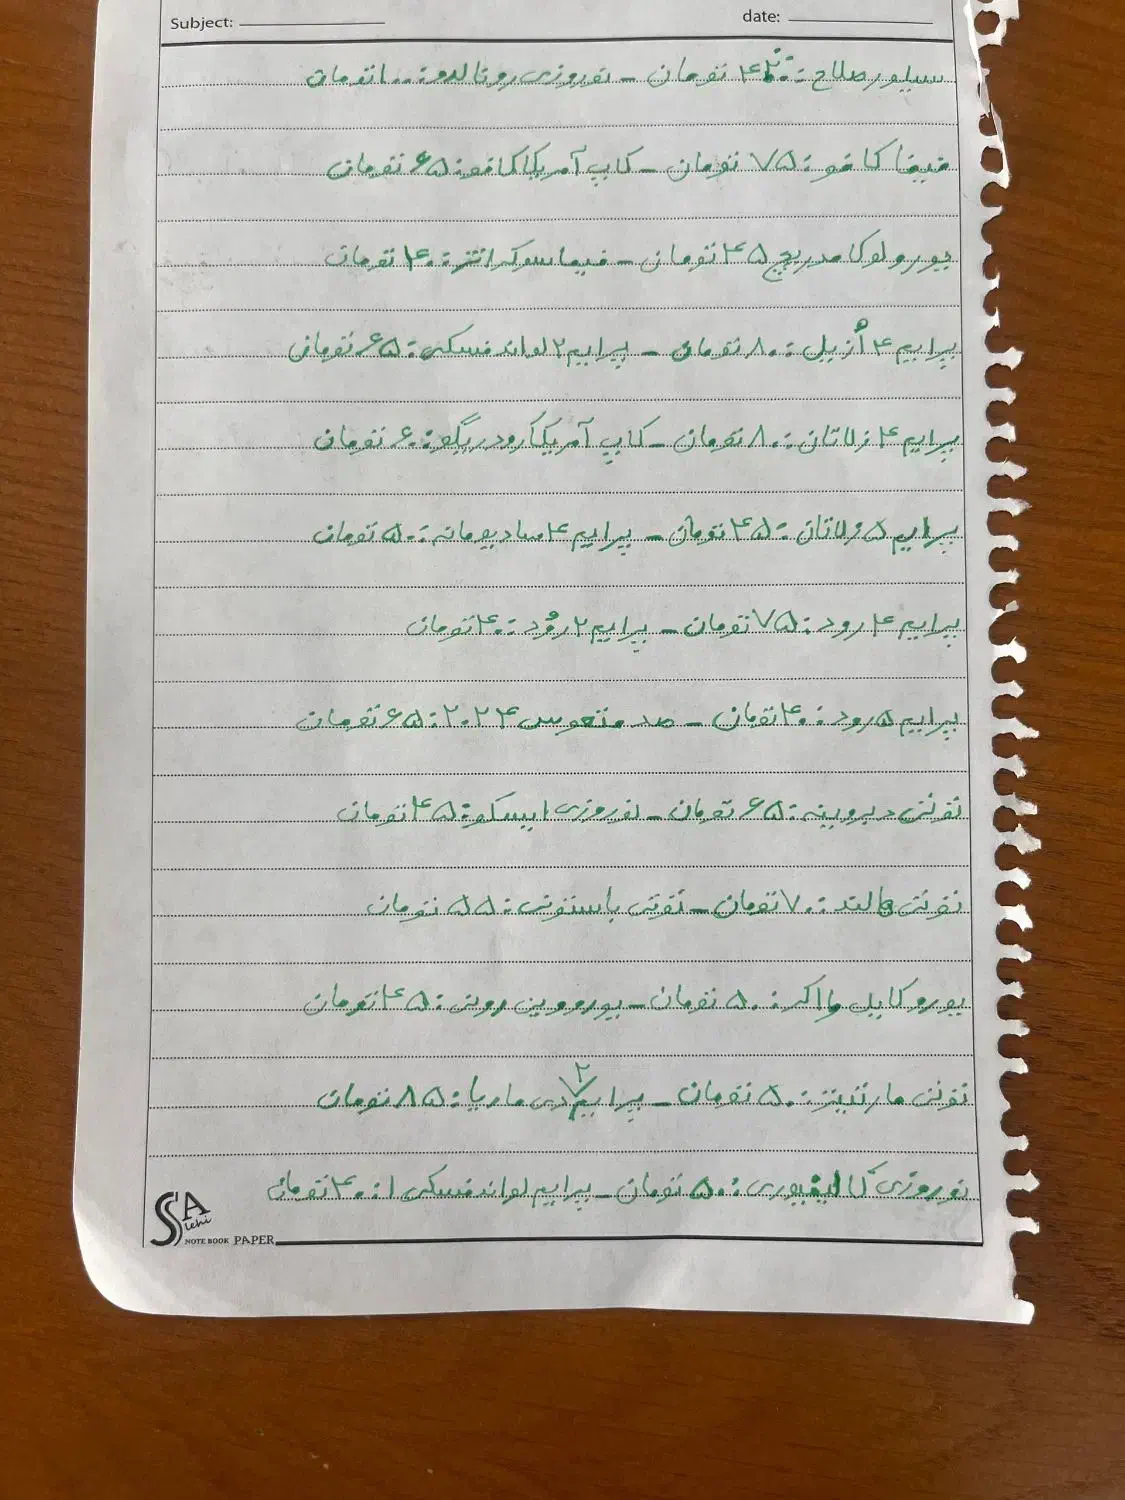 Subject: date:
سیلور صلاح: ۴۲۰ تومان – نوروزی رونالدو: ۱۰۰ تومان
فیفا کافو: ۷۵ تومان – کاپ آمریکا کافو: ۶۵ تومان
یورو لوکا مدریچ ۴۵ تومان – فیفا سوکراتز: ۴۰ تومان
پرایم ۴ اُزیل: ۸۰ تومان – پرایم ۲ لواندفسکی: ۶۵ تومان
پرایم ۴ زلاتان: ۸۰ تومان – کاپ آمریکا رودریگو: ۶۰ تومان
پرایم ۵ زلاتان: ۴۵ تومان – پرایم ۴ سادیومانه: ۵۰ تومان
پرایم ۴ رود: ۷۵ تومان – پرایم ۲ رود: ۴۰ تومان
پرایم ۵ رود: ۴۰ تومان – صد منتخب ۲۰۲۴: ۶۵ تومان
نوتی دیروینه: ۶۵ تومان – نوروزی ایسکو: ۴۵ تومان
نوتی هالند: ۷۰ تومان – نوتی باستونی: ۵۵ تومان
یورو کایل واکر: ۵۰ تومان – یورو وین رونی: ۴۵ تومان
نوتی مارتینز: ۵۰ تومان – پرایم ۲ دی ماریا: ۸۵ تومان
نوروزی کالیفیوری: ۵۰ تومان – پرایم لواندفسکی ۱: ۴۰ تومان
SA lehi
NOTE BOOK PAPER